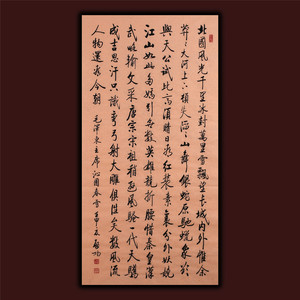 北國風光千里冰封萬里雪飄望长城内外惟余
莽〻大河上下頓失滔〻山舞銀蛇原馳蠟象欲
與天公試比高須晴日看紅裝素裹分外妖嬈
江山如此多嬌引各數英雄競折腰惜秦皇漢
武略輸文采唐宗宋祖稍遜風騷一代天驕
成吉思汗只識彎弓射大雕俱往矣數風流
人物還看今朝 毛澤東主席沁園春雪 啟功